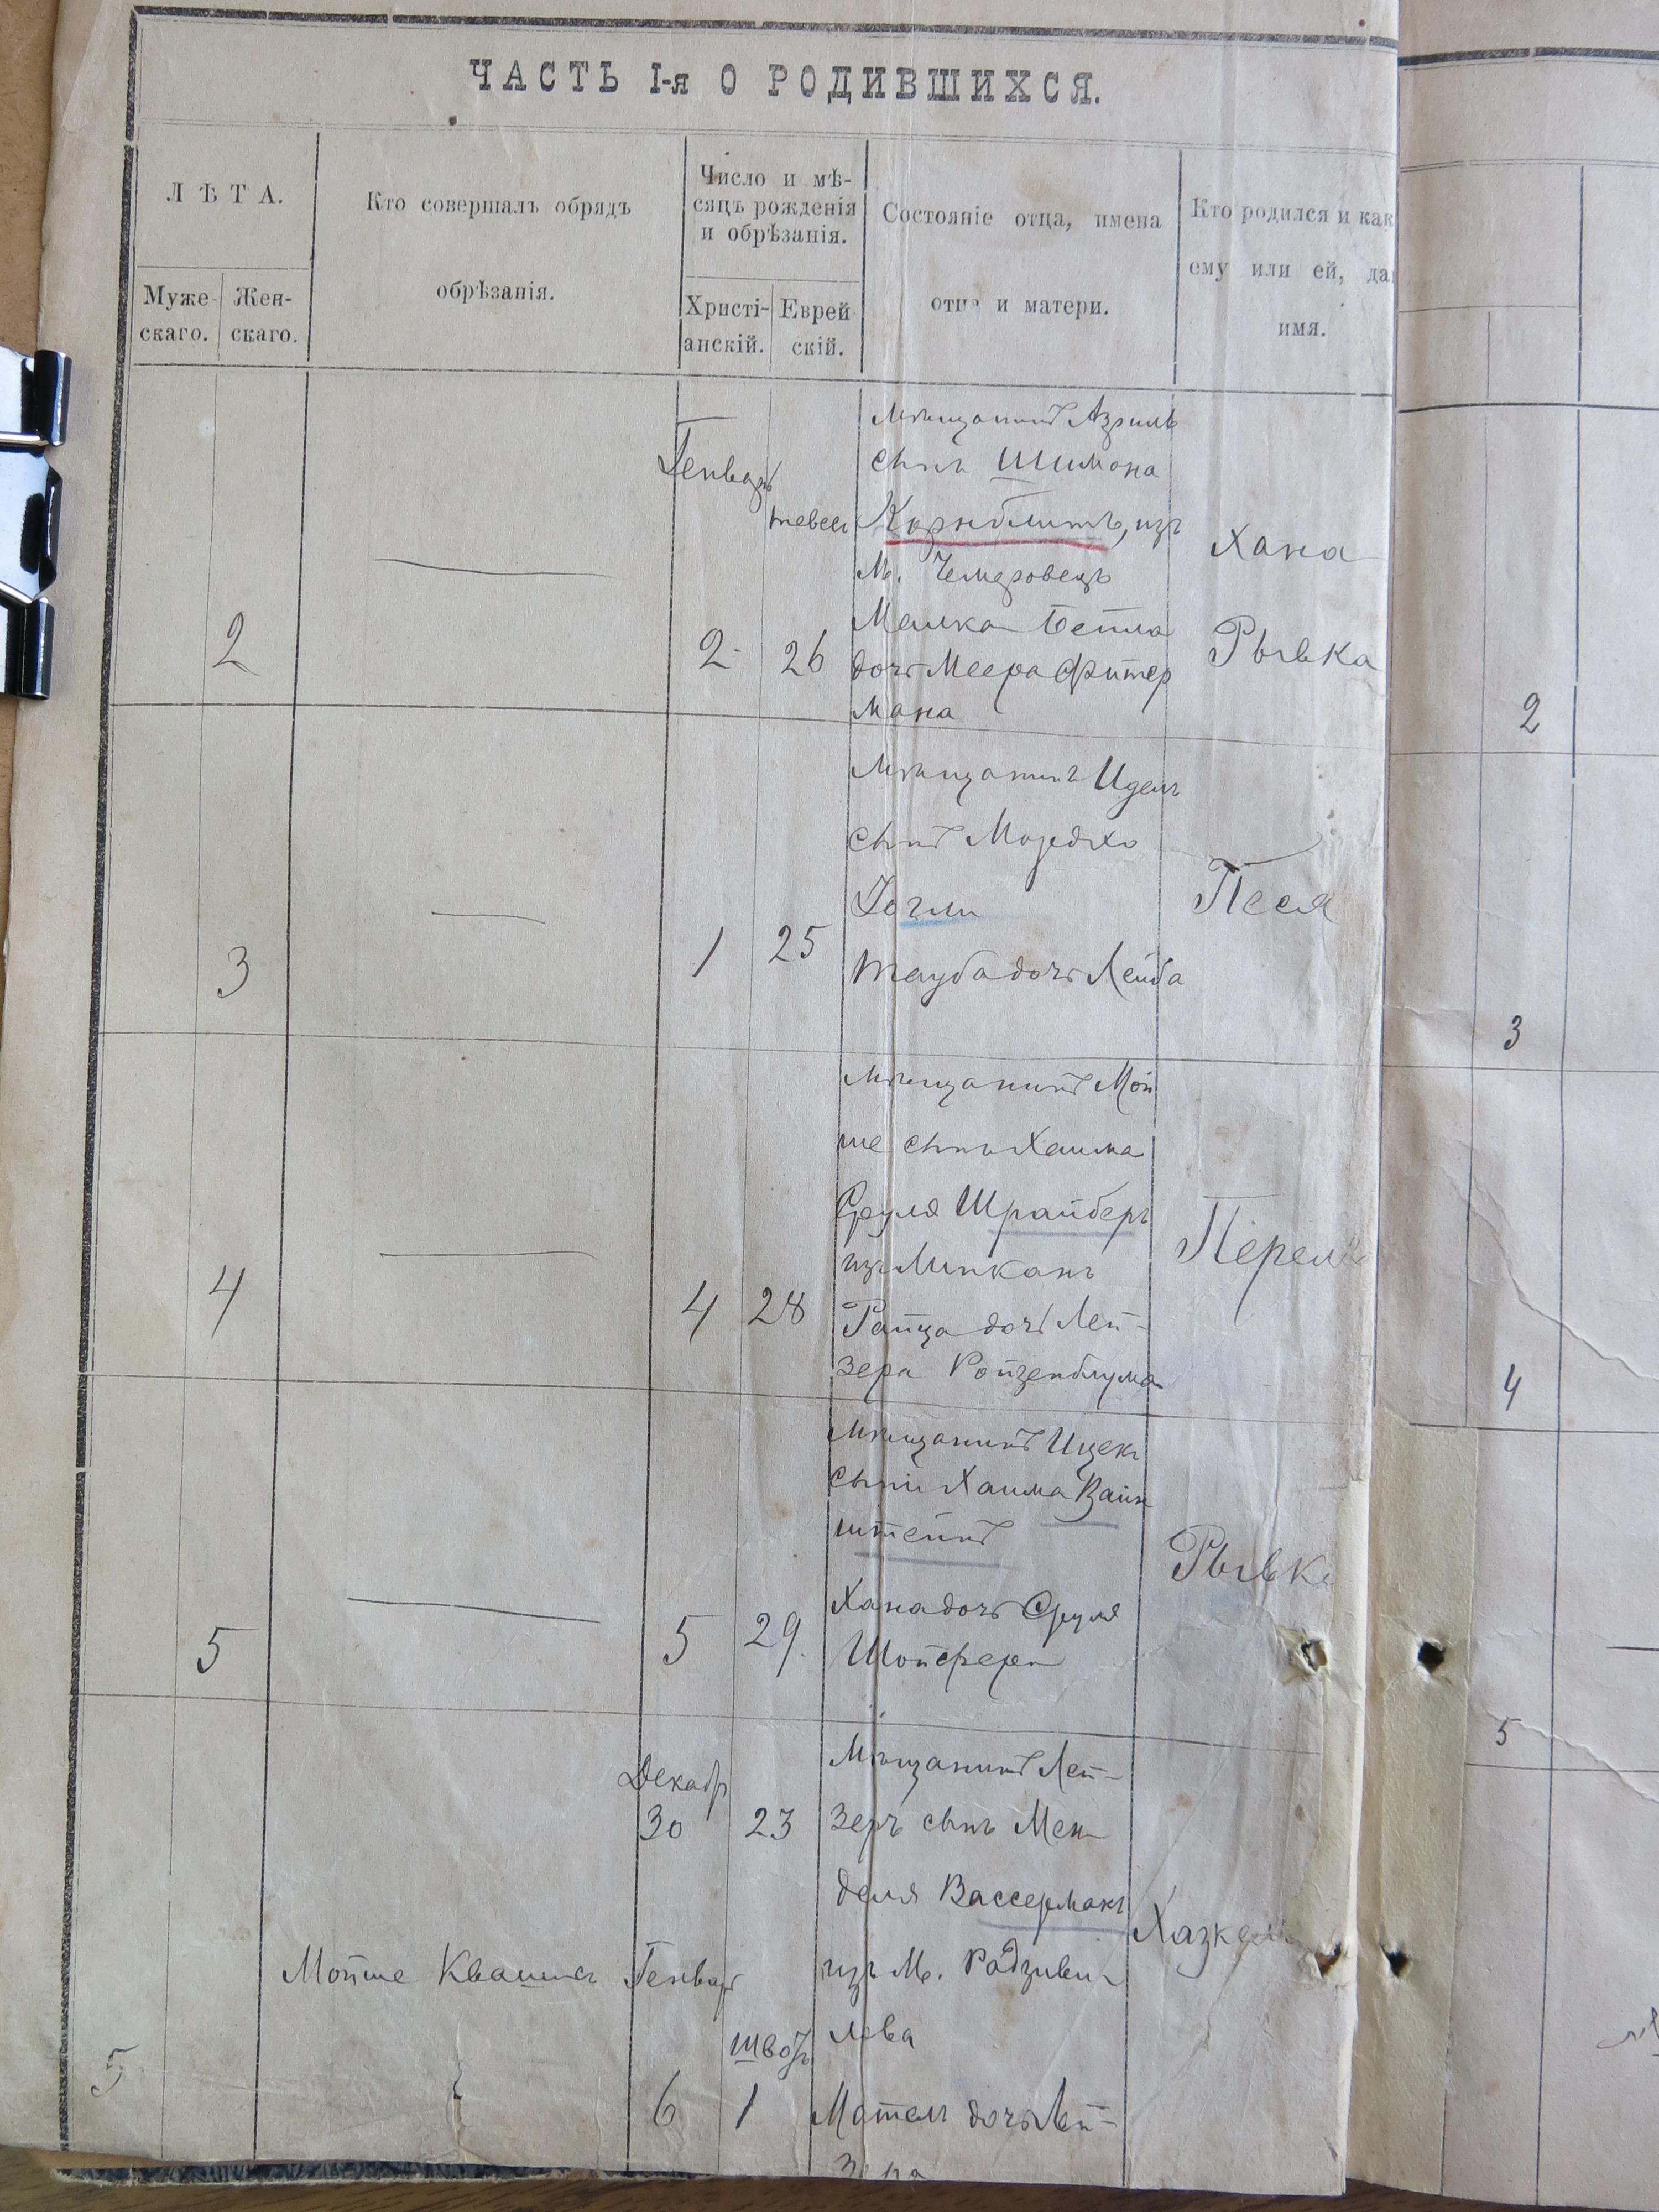 ЧАСТЬ I-я О РОДИВШИХСЯ.
ЛѢТА.
Муже-
скаго.
Жен-
скаго.
Кто совершалъ обрядъ
обрѣзанія.
Число и мѣ-
сяцъ рожденія
и обрѣзанія.
Христі-
анскій.
Еврей
скій.
Состояніе отца, имена
отца и матери.
Кто родился и как
ему или ей, да
имя.
2
Генварь
2
тевеш
26
мѣщанинъ Азриль
сынъ Шимона
Корнблитъ, изъ
М. Чемеровецъ
Малка Бейла
дочь Меера Фитер
мана
Хана
Рывка
2
3
1
25
мѣщанинъ Идель
сынъ Мордхо
дочь Лейба
Песя
3
4
4
28
мѣщанинъ Мой
ше сынъ Хаима
Сруля Шрайберъ
изъ Липканъ
Райца дочь Лей-
зера Ройзенблюма
4
5
5
29.
мѣщанинъ Ицекъ
сынъ Хаима Вайн
штейнъ
Хана дочь Сруля
Рывка
5
5
Мойше
Декабр
30
23
Генвар
6
шват
1
Мѣщанинъ Лей-
зеръ сынъ Мен-
деля Вассерманъ
изъ М. Радзиви-
лова
дочь Лей-
зера